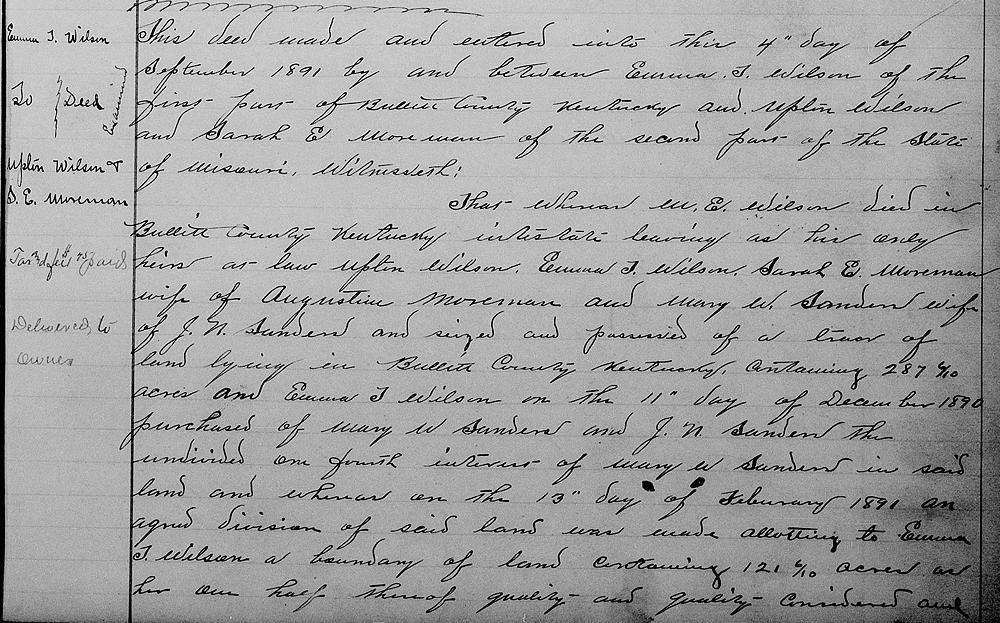 Emma T. Wilson
To } Deed
Examined
Upton Wilson &
S. E. Moreman
Tax & fee paid
Delivered to
owner
This deed made and entered into this 4" day of
September 1891 by and between Emma. T. Wilson of the
first part of Bullitt County Kentucky and Upton Wilson
and Sarah E Moreman of the second part of the State
of Missouri, Witnesseth:
That whereas W. E. Wilson died in
Bullitt County Kentucky intestate leaving as his only
heirs at law Upton Wilson, Emma T. Wilson, Sarah E. Moreman
wife of Augustine Moreman and Mary W. Sanders wife
of J. N. Sanders and seized and possessed of a tract of
land lying in Bullitt County Kentucky, containing 287 6/10
acres and Emma T Wilson on the 11" day of December 1890
purchased of Mary W Sanders and J. N. Sanders the
undivided one fourth interest of Mary W Sanders in said
land and whereas on the 13" day of Feburary 1891 an
agreed division of said land was made allotting to Emma
T. Wilson a boundary of land containing 121 6/10 acres as
her one half thereof quality and quality considered and